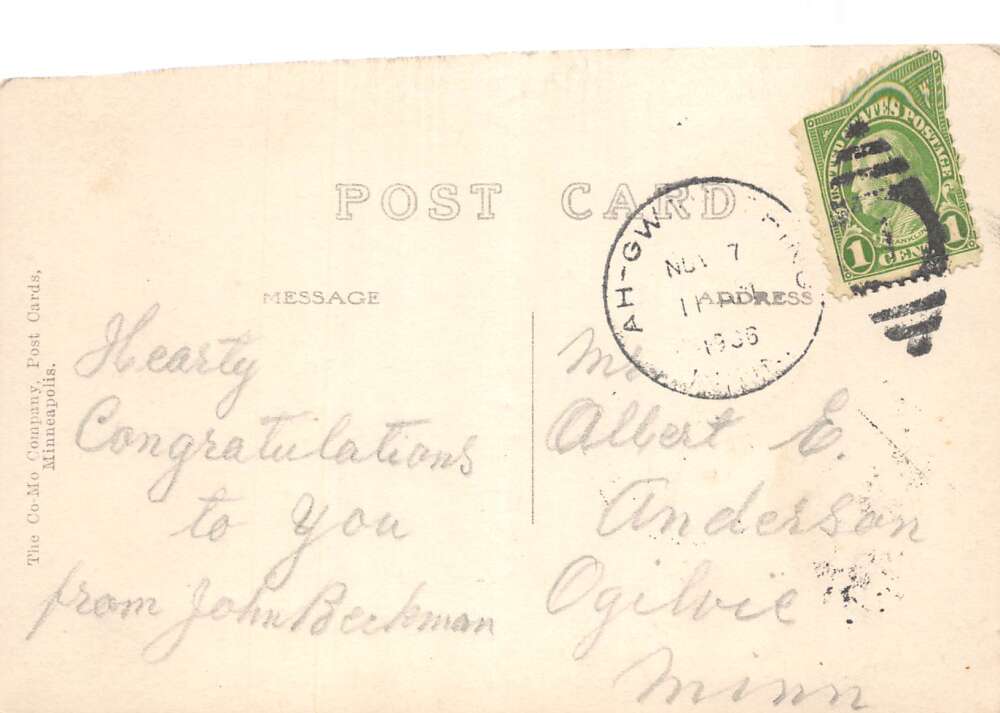 POST CARD
MESSAGE
ADDRESS
The Co-Mo Company, Post Cards,
Minneapolis.
Hearty
Congratulations
to you
from John Beckman
Albert E.
Anderson
Ogilvie
Minn
AH-GW
NOV 7
11
1936
UNITED STATES POSTAGE
FRANKLIN
1 CENT 1